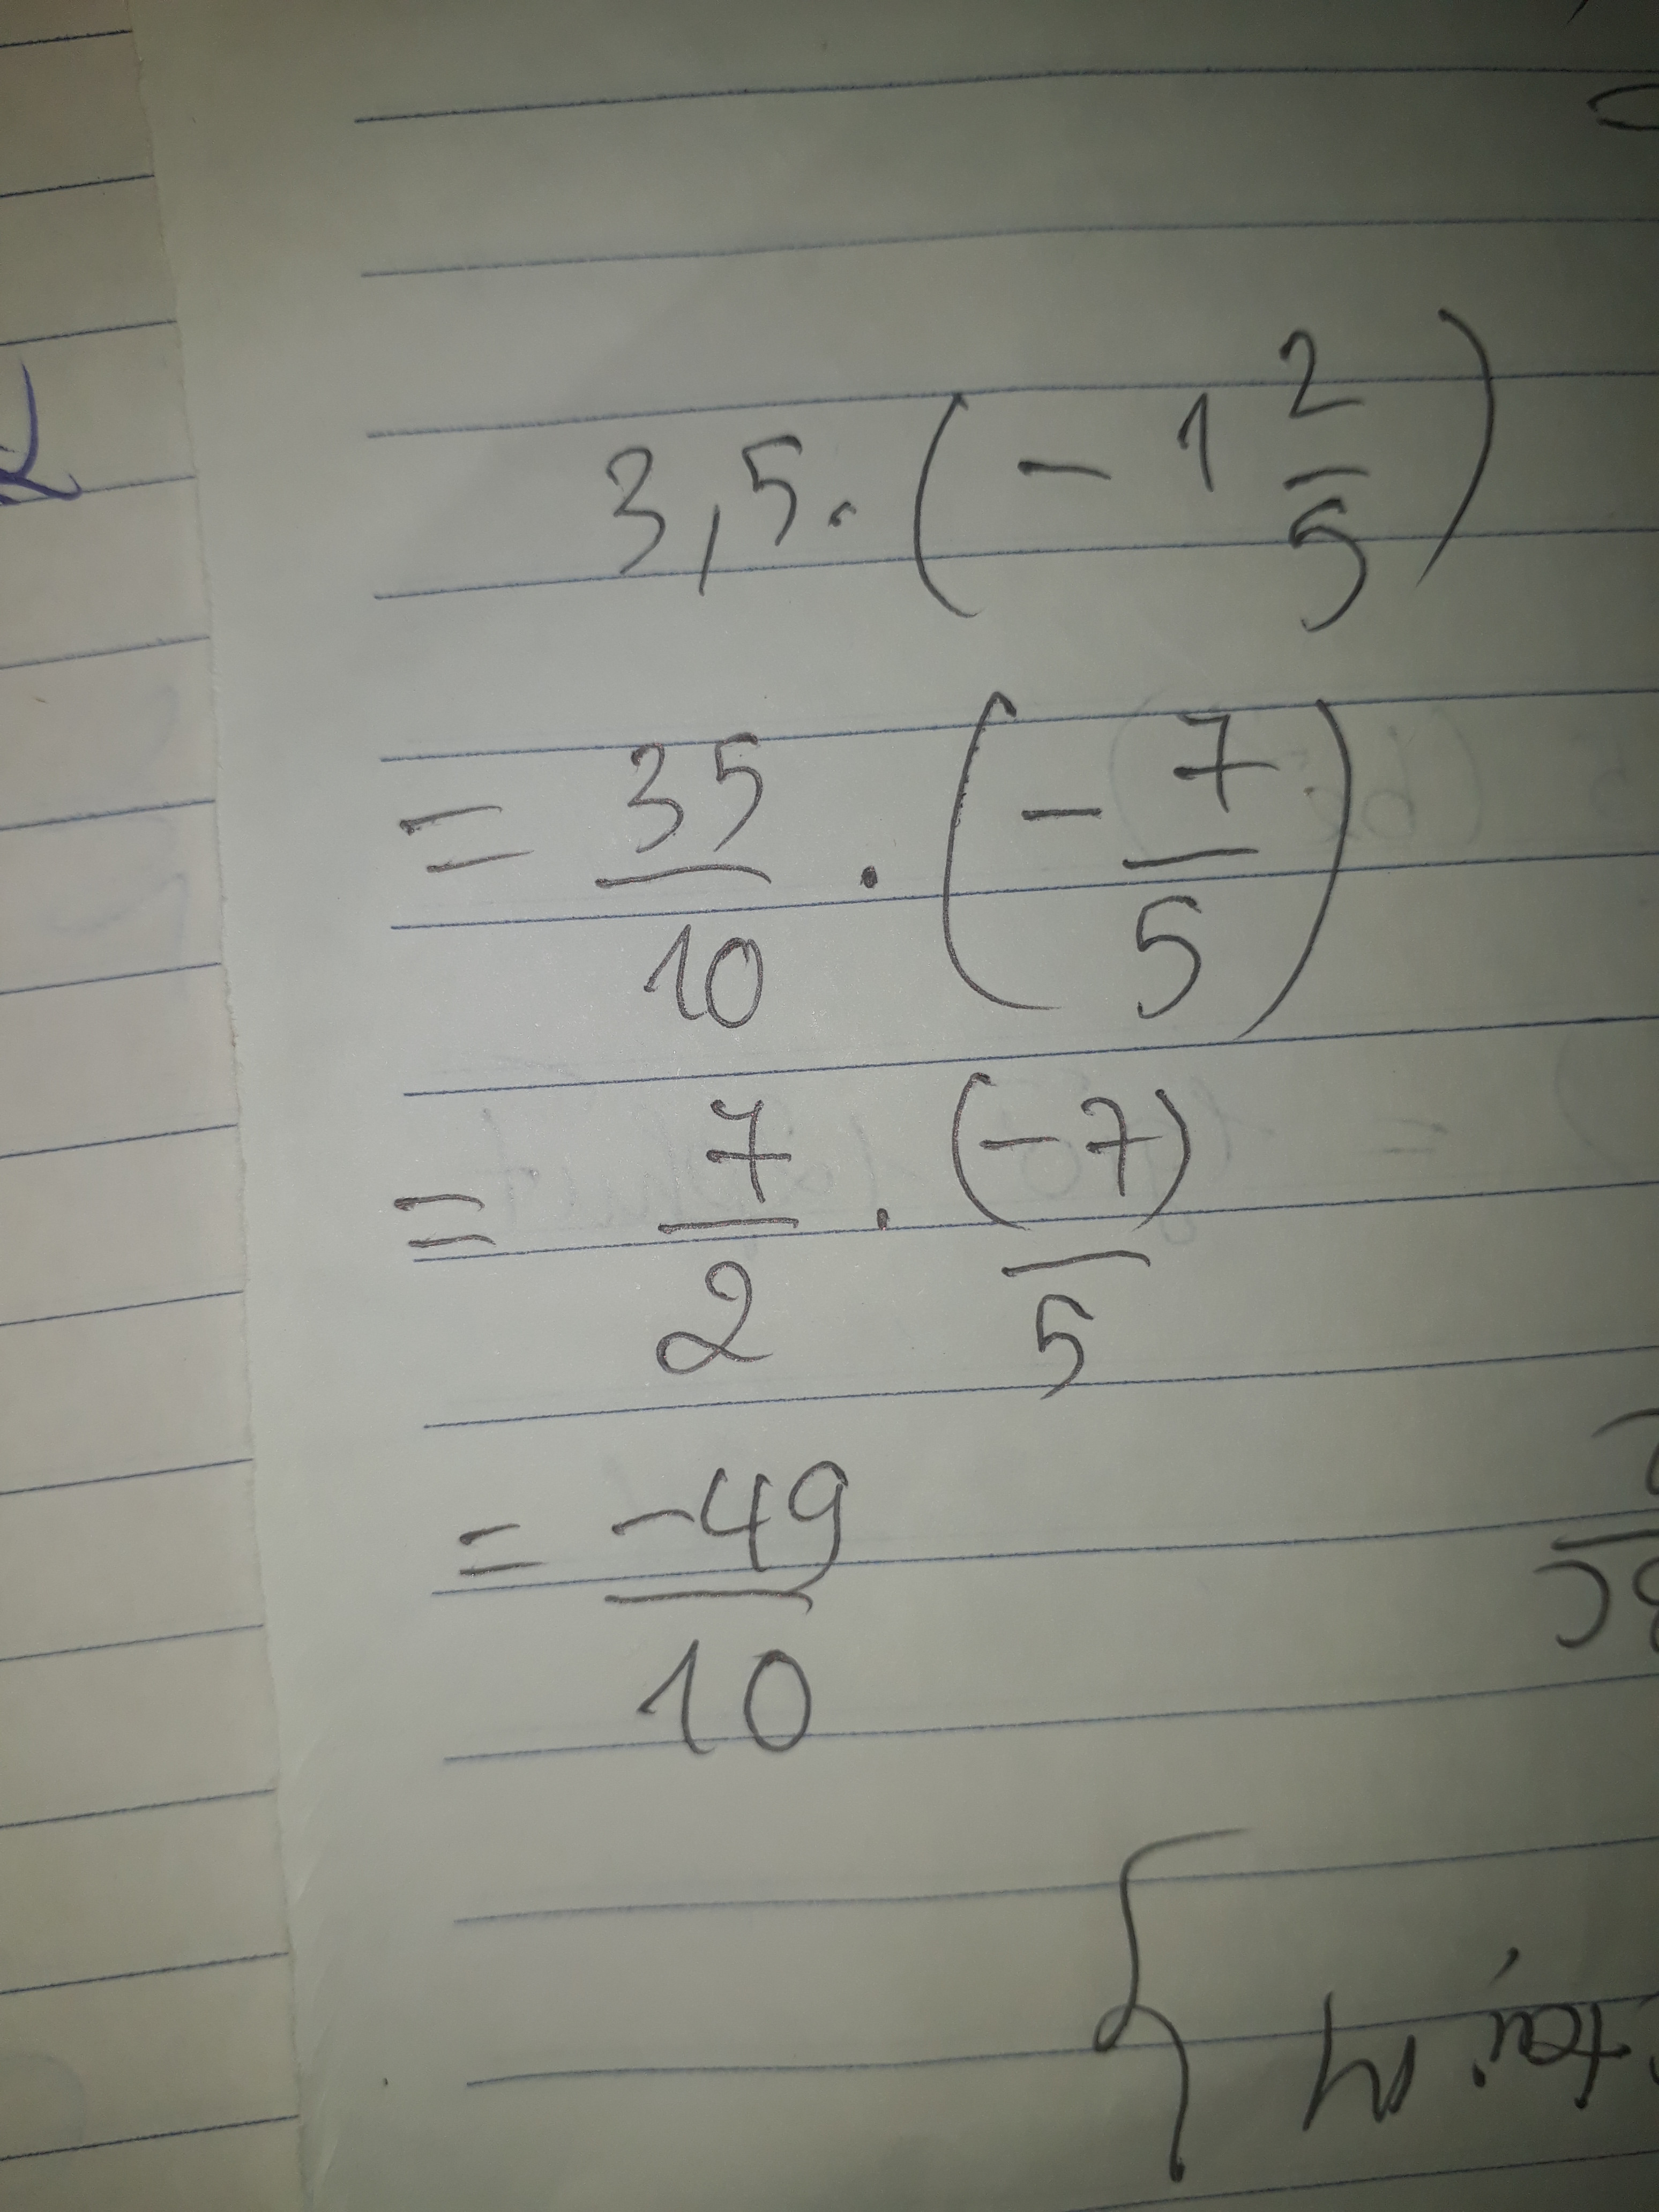 3,5 . (- 1 2/5)
= 35/10 . (- 7/5)
= 7/2 . (-7)/5
= -49/10
tại M